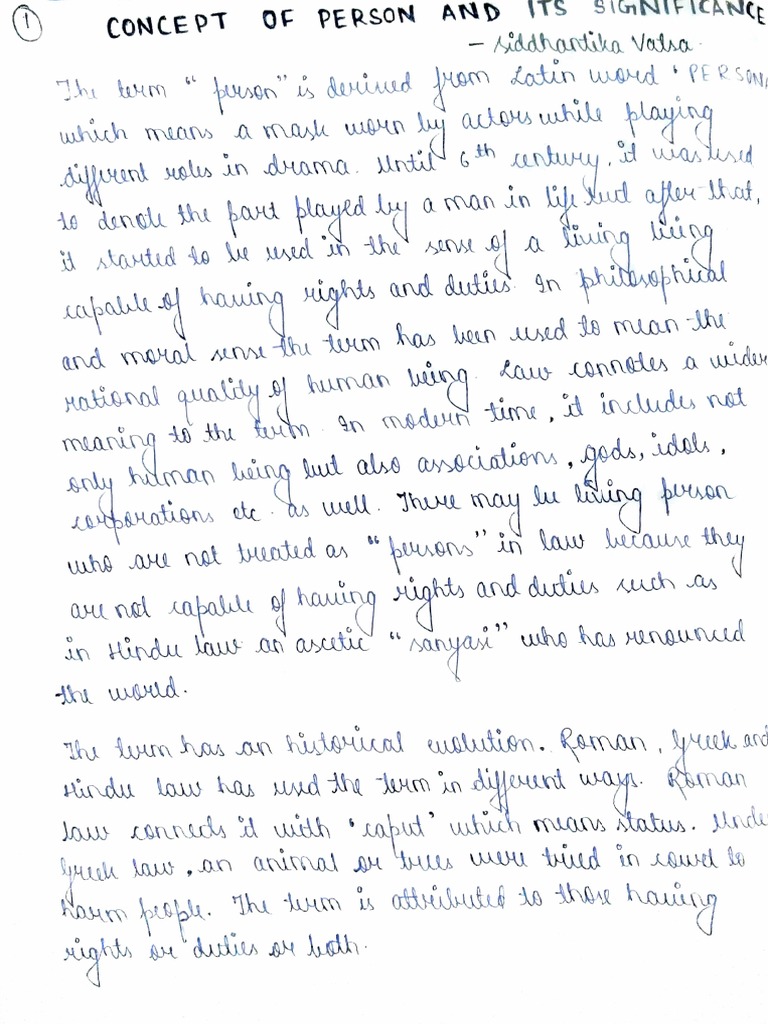 1 CONCEPT OF PERSON AND ITS SIGNIFICANCE
- Siddhantika Vatsa.
The term "person" is derived from Latin word 'PERSONA
which means a mask worn by actors while playing
different roles in drama. Until 6th century, it was used
to denote the part played by a man in life but after that,
it started to be used in the sense of a living being
capable of having rights and duties. In philosophical
and moral sense the term has been used to mean the
rational quality of human being. Law connotes a wider
meaning to the term. In modern time, it includes not
only human being but also associations, gods, idols,
corporations etc. as well. There may be living person
who are not treated as "persons" in law because they
are not capable of having rights and duties such as
in Hindu law an ascetic "sanyasi" who has renounced
the world.
The term has an historical evolution. Roman, Greek and
Hindu law has used the term in different ways. Roman
law connects it with 'caput' which means status. Unde
Greek law, an animal or trees were tried in court to
harm people. The term is attributed to those having
rights or duties or both.